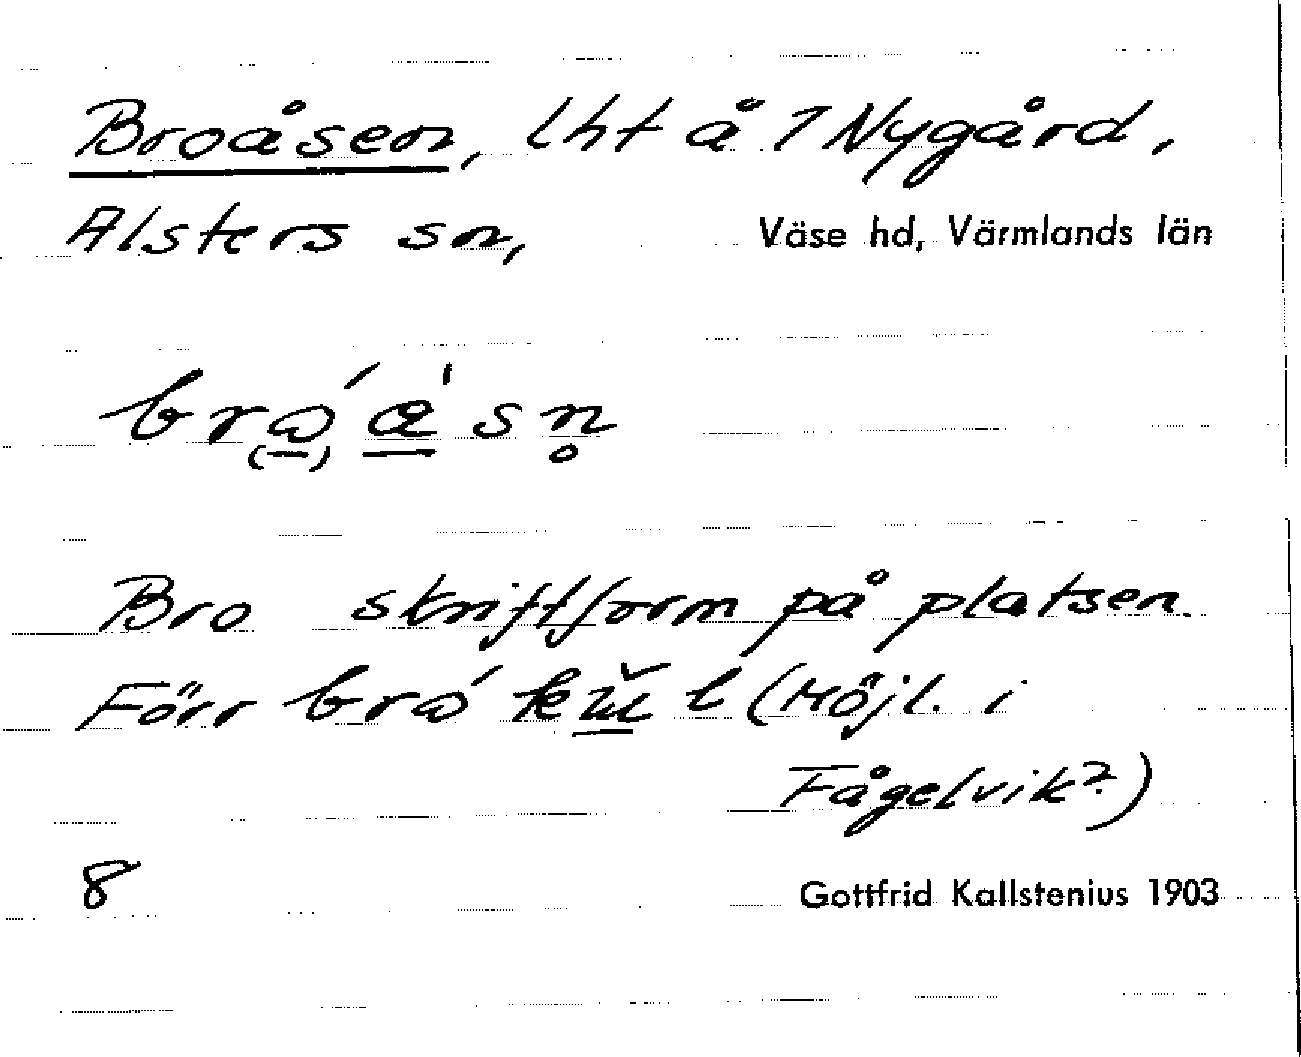 Broåsen, lht å 7 Nygård,
Alsters sn, Väse hd, Värmlands län
Bro skriftform på platsen
Förr (Möjl. i
Fågelvik?)
8 Gottfrid Kallstenius 1903